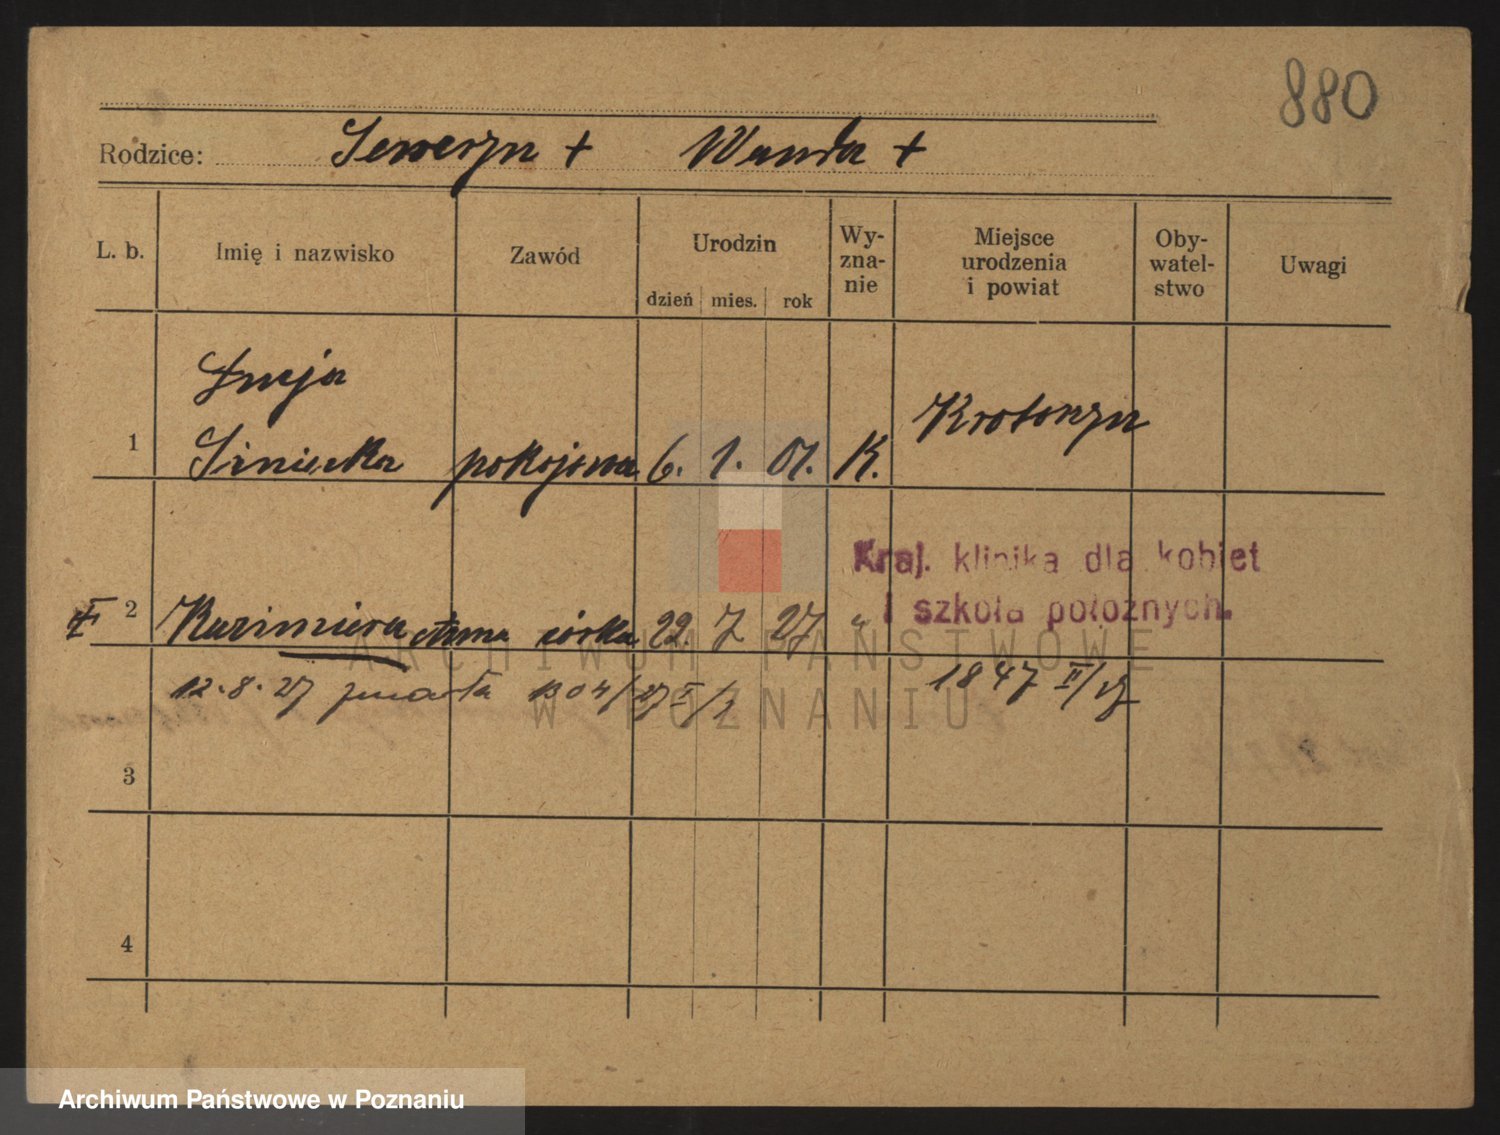 880
Rodzice: Seweryn + Wanda +
L. b. Imię i nazwisko Zawód Urodzin Wy-zna-nie Miejsce urodzenia i powiat Oby-watel-stwo Uwagi
dzień mies. rok
Łucja
1 Siniecka pokojowa 6. 1. 01. K. Krotoszyn
Kraj. klinika dla kobiet
i szkoła położnych.
2 Kazimiera Anna córka 22. 7 27 "
12.8.27 zmarła 1304/27 I/2 1847 II/27
3
4
ARCHIWUM PAŃSTWOWE
W POZNANIU
Archiwum Państwowe w Poznaniu